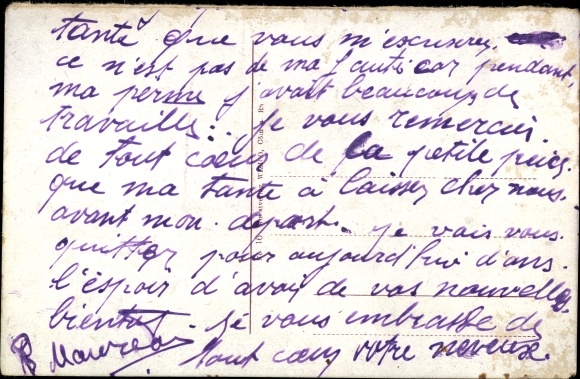 tante que vous m'excuserez
ce n'est pas de ma faute car pendant
ma perme j'avait beaucoup de
travailles. Je vous remercie
de tout cœur de la petite pièce
que ma tante à laisser chez nous
avant mon départ. je vais vous
quitter pour aujourd'hui d'ans
l'éspoir d'avoir de vos nouvelles
bientot. Je vous embrasse de
tout cœur votre neveux